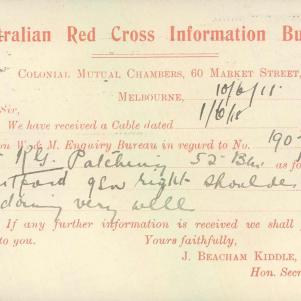 tralian Red Cross Information Bu
COLONIAL MUTUAL CHAMBERS, 60 MARKET STREET,
MELBOURNE, 10/6/18
Sir, 1/6/18
We have received a Cable dated
on W & M. Enquiry Bureau in regard to No. 190
R G. Patching 52 Btn as fo
tford gsw right shoulder
doing very well
If any further information is received we shall
to you. Yours faithfully,
J. BEACHAM KIDDLE,
Hon. Secr